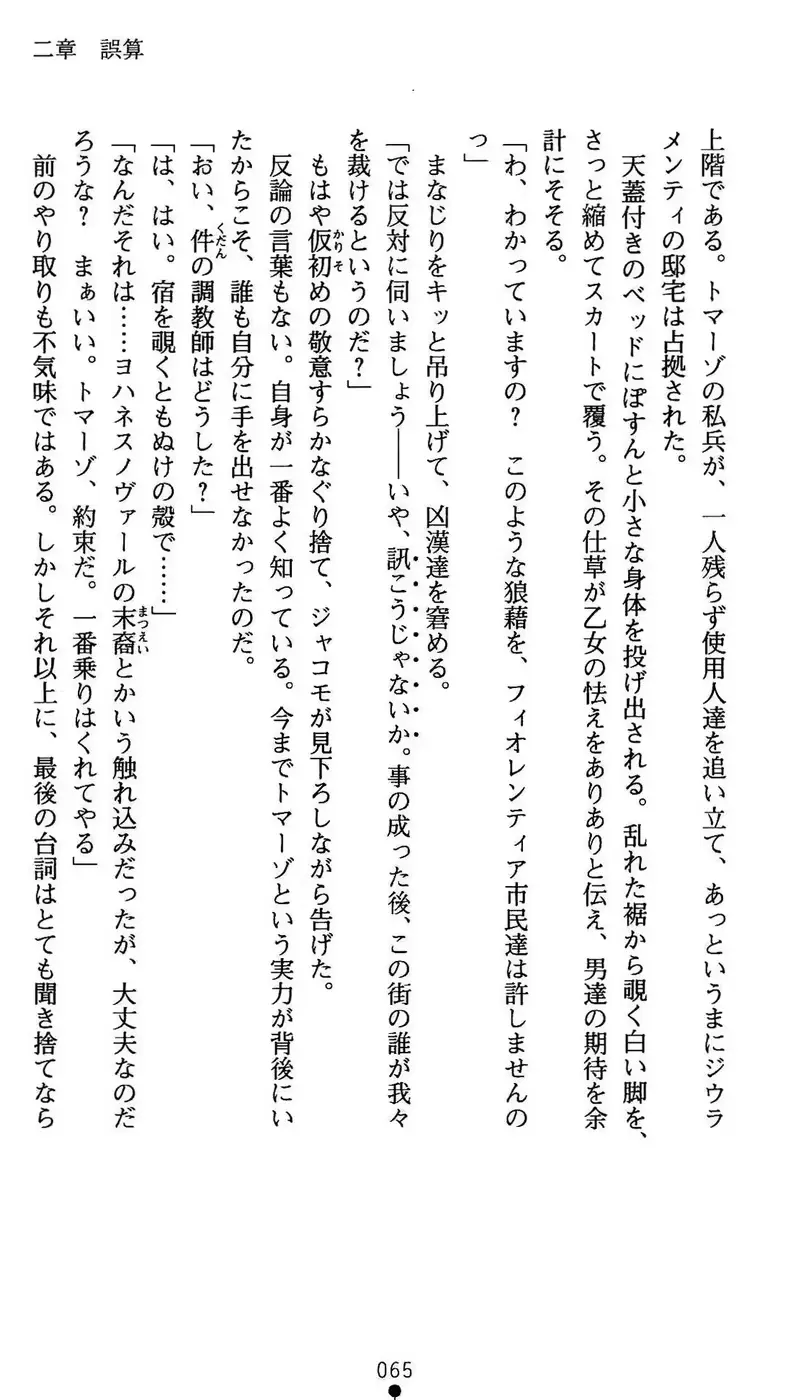 二章　誤算
上階である。トマーゾの私兵が、一人残らず使用人達を追い立て、あっというまにジウラ
メンティの邸宅は占拠された。
天蓋付きのベッドにぽすんと小さな身体を投げ出される。乱れた裾から覗く白い脚を、
さっと縮めてスカートで覆う。その仕草が乙女の怯えをありありと伝え、男達の期待を余
計にそそる。
「わ、わかっていますの？　このような狼藉を、フィオレンティア市民達は許しませんの
っ」
まなじりをキッと吊り上げて、凶漢達を窘める。
「では反対に伺いましょう――いや、訊こうじゃないか。事の成った後、この街の誰が我々
を裁けるというのだ？」
もはや仮初めの敬意すらかなぐり捨て、ジャコモが見下ろしながら告げた。
反論の言葉もない。自身が一番よく知っている。今までトマーゾという実力が背後にい
たからこそ、誰も自分に手を出せなかったのだ。
「おい、件の調教師はどうした？」
「は、はい。宿を覗くともぬけの殻で……」
「なんだそれは……ヨハネスノヴァールの末裔とかいう触れ込みだったが、大丈夫なのだ
ろうな？　まぁいい。トマーゾ、約束だ。一番乗りはくれてやる」
前のやり取りも不気味ではある。しかしそれ以上に、最後の台詞はとても聞き捨てなら
065